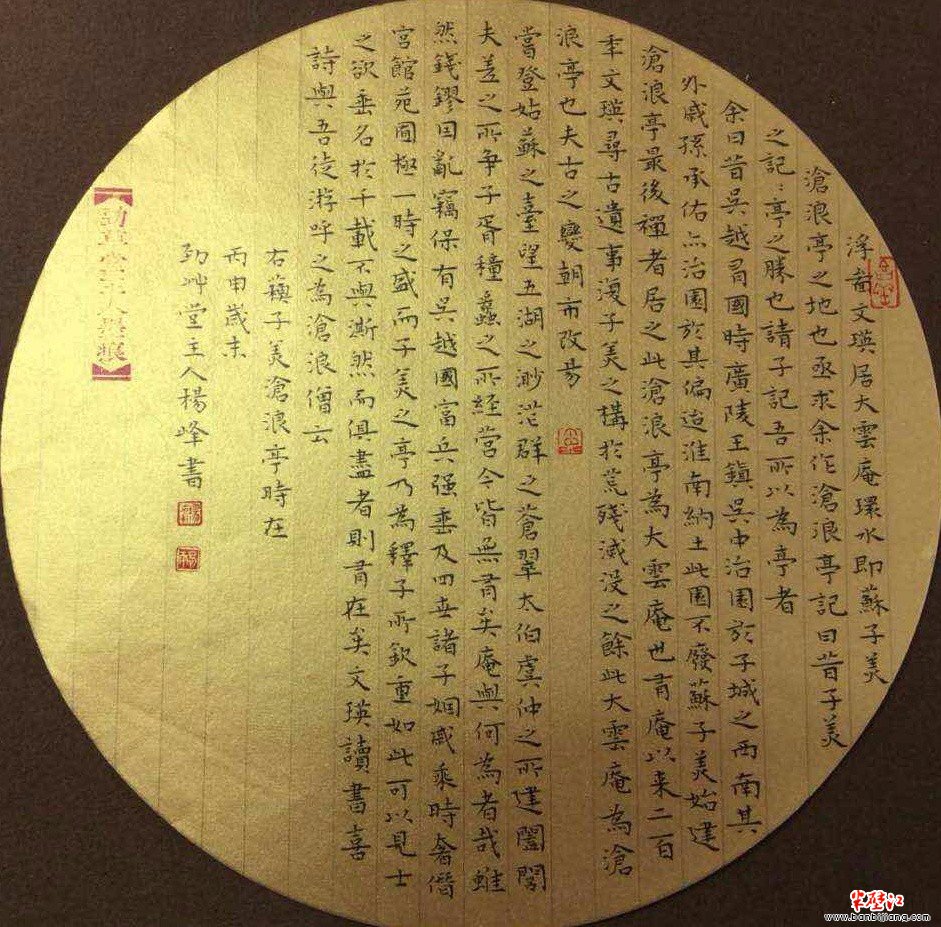 浮啚文瑛居大雲庵環水即蘇子美
滄浪亭之地也亟求余作滄浪亭記曰昔子美
之記:亭之勝也請子記吾所以為亭者
余曰昔吳越有國時廣陵王鎮吳中治園於子城之西南其
外戚孫承佑亦治園於其偏迨淮南納土此園不廢蘇子美始建
滄浪亭最後禪者居之此滄浪亭為大雲庵也有庵以来二百
年文瑛尋古遺事復子美之構於荒殘滅没之餘此大雲庵為滄
浪亭也夫古之變朝市改易
嘗登姑蘇之臺望五湖之渺茫群之蒼翠太伯虞仲之所建闔閭
夫差之所争子胥種蠡之所経营今皆無有矣庵與何為者哉雖
然錢鏐因亂竊保有吳越國富兵强垂及四世諸子姻戚乘時奢僭
宮館苑囿極一時之盛而子美之亭乃為釋子所欽重如此可以見士
之欲垂名於千載不與澌然而俱盡者則有在矣文瑛讀書喜
詩與吾徒游呼之為滄浪僧云
右蘓子美滄浪亭時在
丙申歲末
劲艸堂主人楊峰書
半壁江
www.banbijiang.com